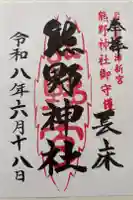 奉拝
新宮
熊野神社御守護
熊野神社
令和八年六月十八日